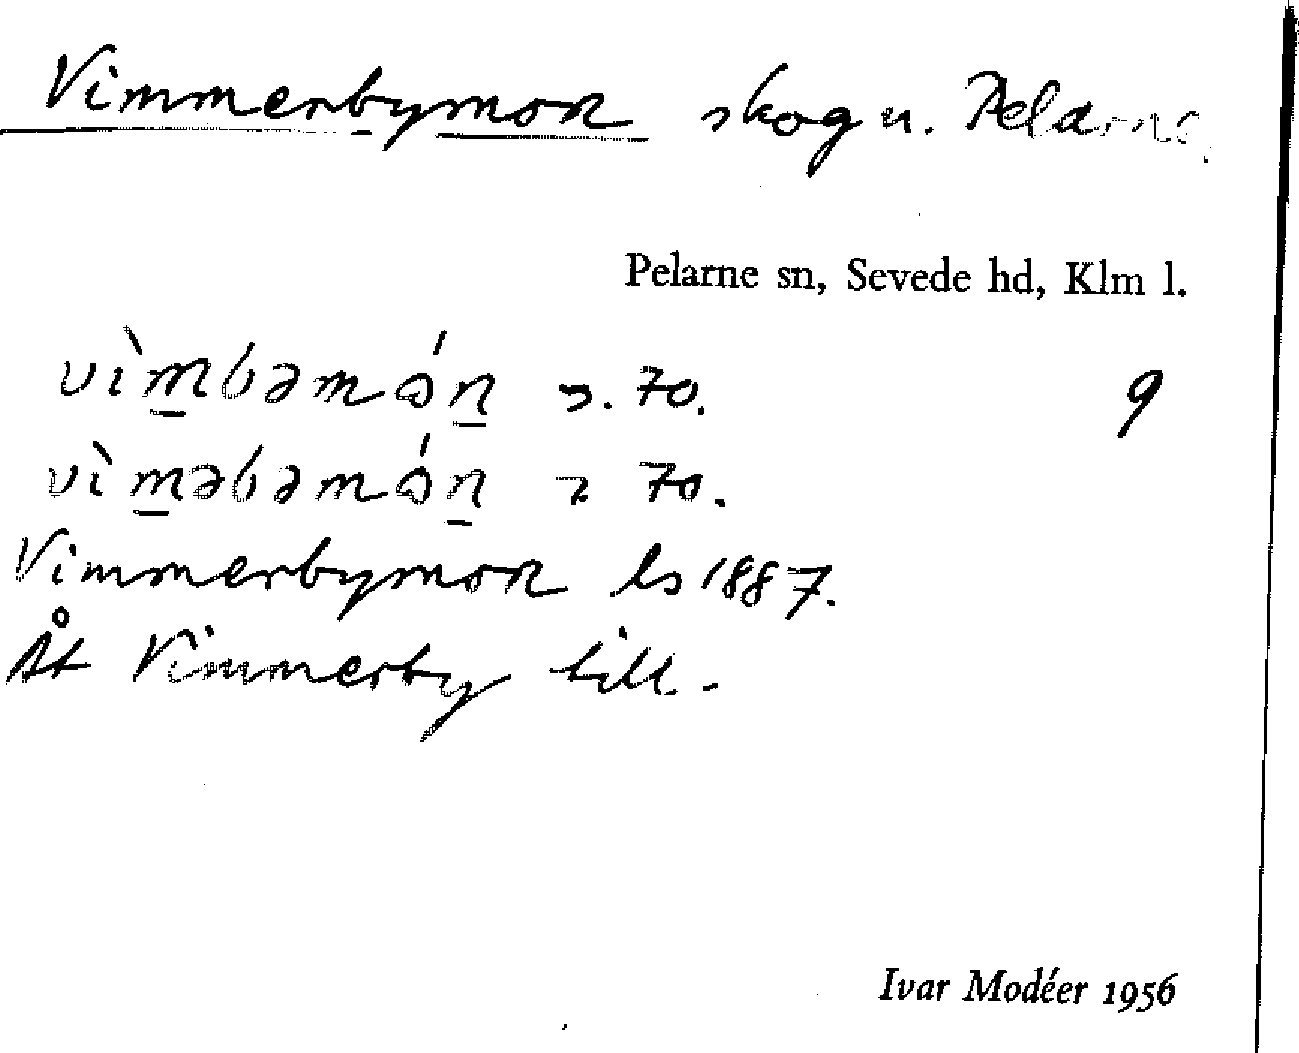 Vimmerbymon skog u. Pelarne
Pelarne sn, Sevede hd, Klm l.
vìm̲bəmɷ́n̲ 70. 9
vìm̲əbəmɷ́n̲ 70.
Vimmerbymon ls 1887.
Åt Vimmerby till.
Ivar Modéer 1956